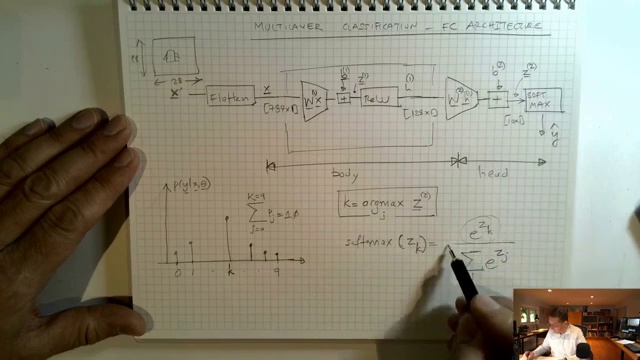 MULTICLASS CLASSIFICATION - FC ARCHITECTURE
28
28
X
Flatten
x
[784x1]
W⁽¹⁾x
b⁽¹⁾
+
z⁽¹⁾
ReLU
h⁽¹⁾
[128x1]
W⁽²⁾h⁽¹⁾
b⁽²⁾
+
z⁽²⁾
[10x1]
SOFT
MAX
ŷ
body
head
p(y|x,θ)
k=9
∑ p̂j = 1.0
j=0
0 1 k 9
k = argmax z⁽²⁾
j
softmax (z_k) = e^{z_k}
∑ e^{z_j}